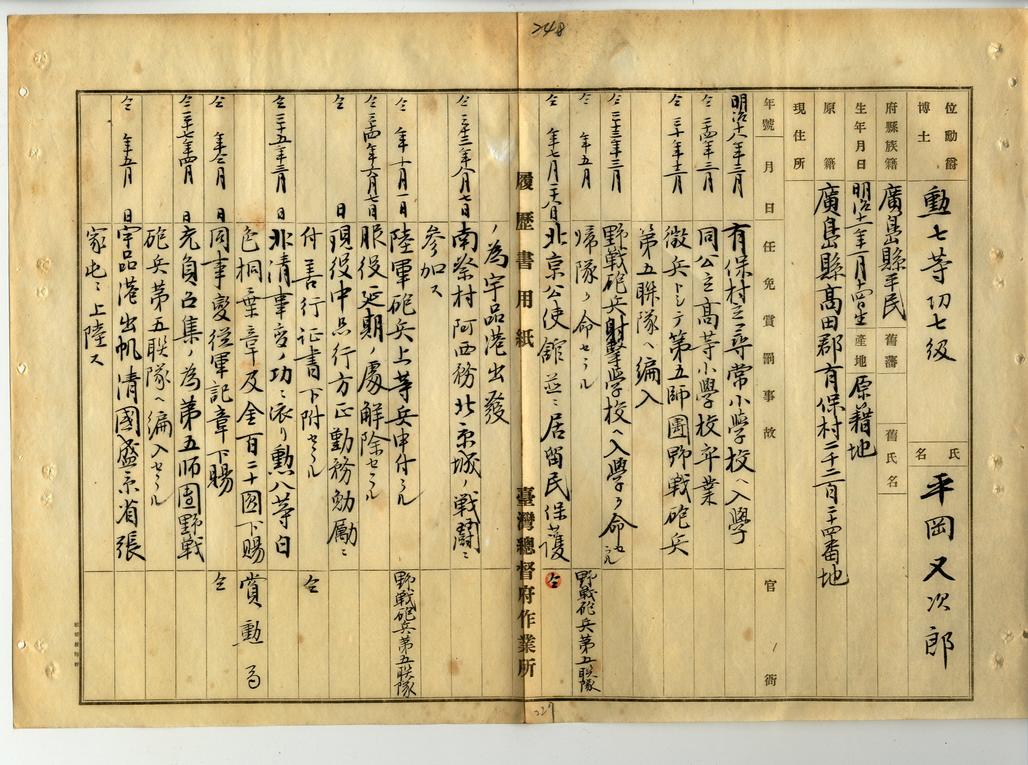 248
位勳爵
博士
勲七等功七級
氏名
平岡又次郎
府縣族籍
廣島縣平民
舊藩
舊氏名
生年月日
産地
原籍地
原籍
廣島縣髙田郡有保村二千二百二十四番地
現住所
年號
月
日
任免賞罰事故
官衙
明治十八年三月
有保村立尋常小學校ヘ入學
仝二十四年三月
同公立高等小學校卒業
仝三十年十二月
徴兵トシテ第五師團野戦砲兵
第五聯隊ヘ編入
仝三十二年三月
野戰砲兵射撃学校ヘ入學ヲ命セラル
仝年五月
帰隊ヲ命セラル
野戰砲兵第五联隊
北京公使館並ニ居留民保護
仝
履歴書用紙
臺灣總督府作業所
ノ為宇品港出發
仝三十三年八月七日
南蔡村阿西務北京城ノ戦闘ニ
参加ス
陸軍砲兵上等兵申付ラル
野戰砲兵第五联隊
服役延期ノ處解除セラル
仝
日
現役中品行方正勤務勉励ニ
付善行証書下附セラル
仝
仝三十五年三月
日
北清事変ノ功ニ依リ勲八等白
色桐葉章及金百二十圓下賜
賞勲局
仝
日
同事變従軍記章下賜
仝
仝三十七年四月
日
充員召集ノ為第五師団野戦
砲兵第五联隊ヘ編入セラル
仝年五月
日
宇品港出帆清國盛京省張
家屯ニ上陸ス
227